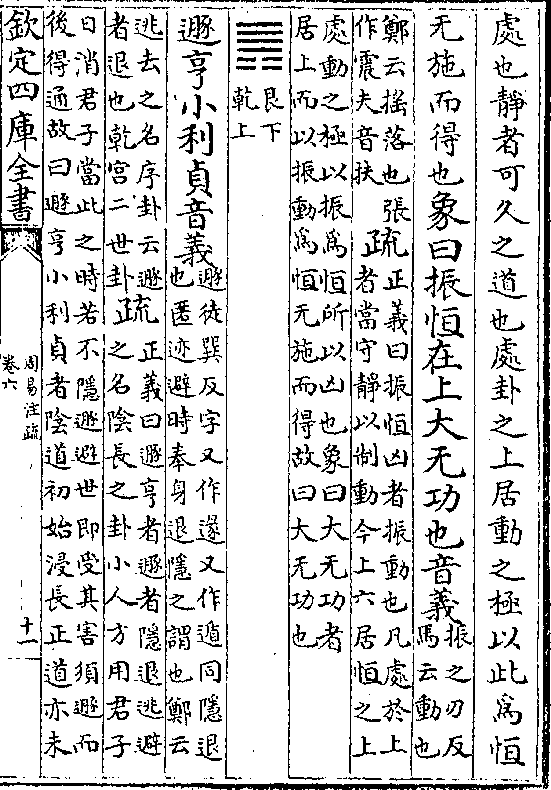 處也靜者可久之道也處卦之上居動之極以此爲恒
无施而得也象曰振恒在上大无功也音義振之刃反
馬云動也
鄭云搖落也張
作震夫音扶
疏正義曰振恒凶者振動也凡處於上
者當守靜以制動今上六居恒之上
處動之極以振爲恒所以凶也象曰大无功者
居上而以振動爲恒无施而得故曰大无功也
艮下
乾上
遯亨小利貞音義遯徒巽反字又作遂又作遁同隱退
也匿迹避時奉身退隱之謂也鄭云
逃去之名序卦云遯
者退也乾宮二世卦
疏正義曰遯亨者遯者隱退逃避
之名陰長之卦小人方用君子
日消君子當此之時若不隱遯避世即受其害須遯而
後得通故曰遯亨小利貞者陰道初始浸長正道亦未
欽定四庫全書
周易注疏
卷六
十一